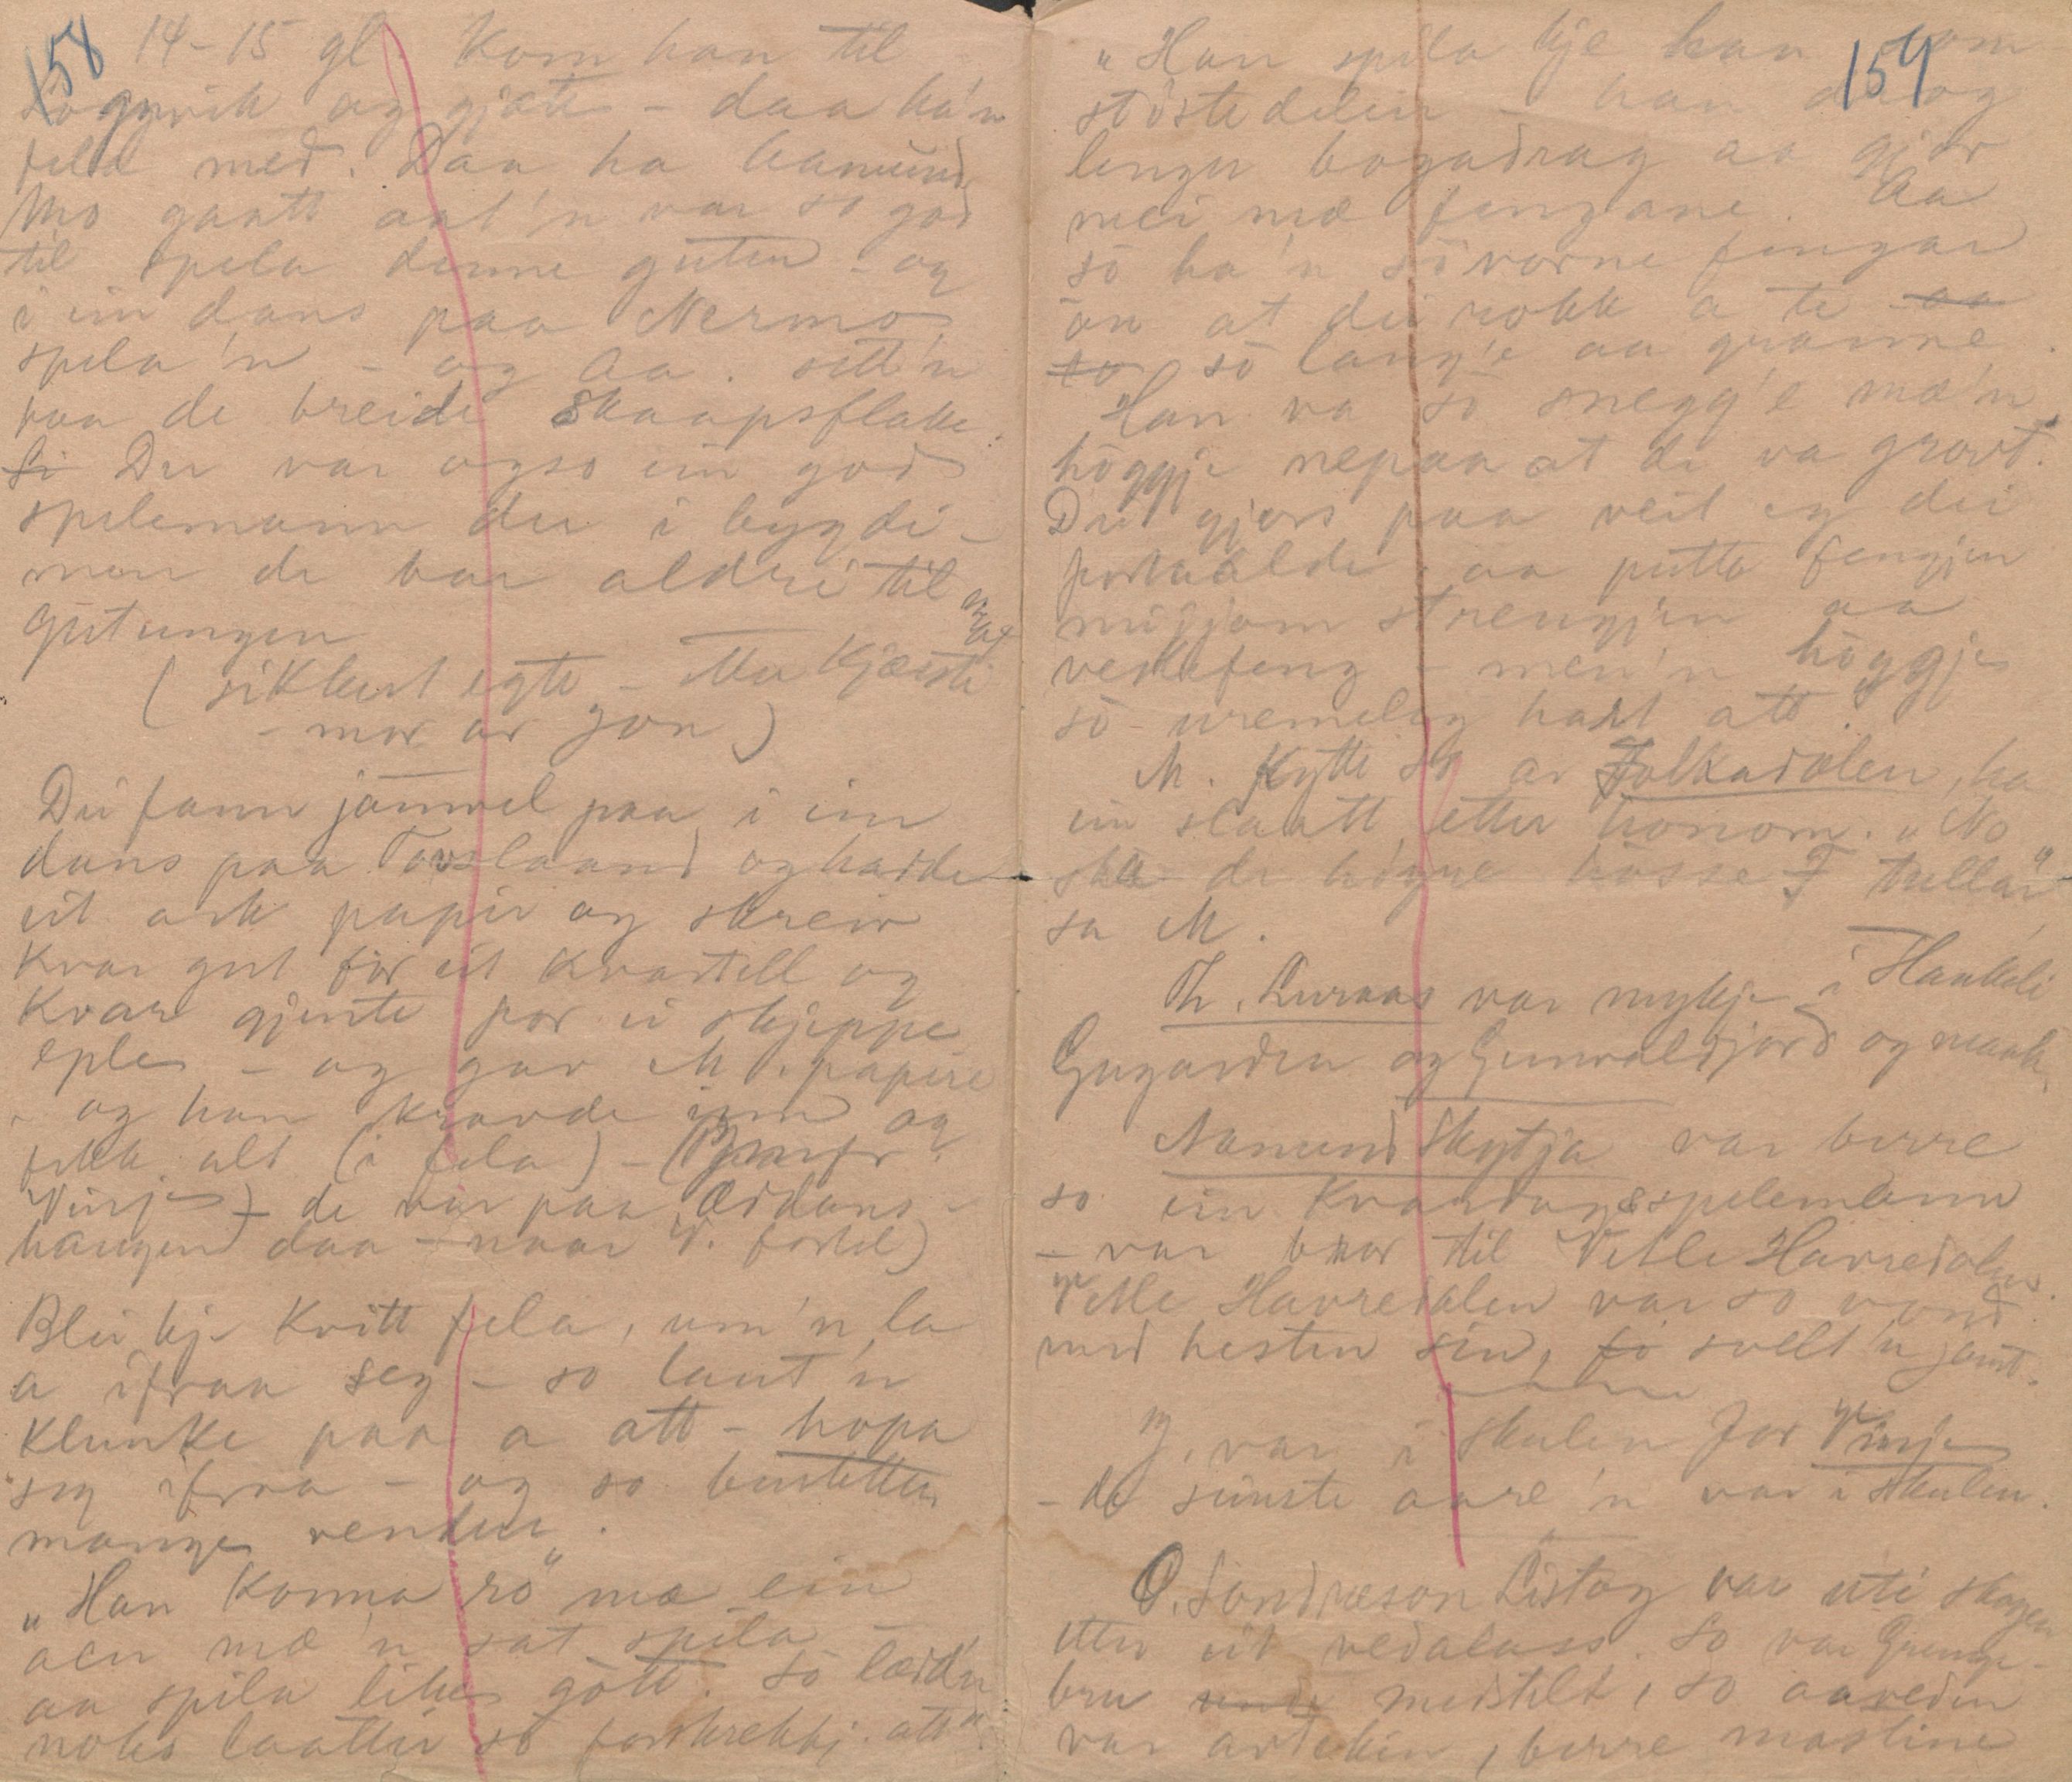 158
14-15 gl. Kom han til
Logyvik og gjætte - daa ha'n
fela med. Daa ha Aamund
Mo gaatt aat'n var so god
til spela denne guten - og
i ein dans paa Nermo
spela'n - og Aa. sett'n
paa de breide Skaapsflake.
Der var ogso ein god
spelemann der i bygdi -
men de bar aldri til mot
gutungen
(sikkert egte - Mor Kjersti
- mor av Jon)
Dei fann jamvel paa i ein
dans paa Torslaand og hadde
eit ark papir og skreiv
kvar gut for eit kvartell og
kvar gjente for ei skjeppe
eple - og gav M. papire
- og han kravde inn og
fekk alt (i fela) -
Vinje - de var paa
haugen daa - naar V. fortel)
Blei kje kvitt fela, um'n la
a ifraa seg - so laut'n
klunke paa a att - hopa
seg ifraa - og so
mange vendur.
"Han konna ro mæ ein
aen mæ'n sat spila -
aa spila likes gott. So lærd'n
noko laattir so forskrekkj. att"
159
"Han spila kje han som
störstedelen - han drog
lenger bogadrag aa gjor
mei mæ fengane. Aa
sö ha'n sövorne fengar
ön at dei rokk a te
sö lang'e aa granne.
Han va sö snegg'e mæ'n
höggje nepaa at de va grovt.
Dei gjors paa veit eg dei
forhaalde aa putte fengjen
mijjom strengjen aa
veslefeng - men'n höggje
sö uremeleg hart att"
M. Kytti av Folkadalen, ha
ein slaatt etter honom. "No
ska de höyre hosse F tullar"
sa M.
Th. Luraas var mykje i Haukeli
Gugarden og Gunvaldjord og maala
Aamund Skytja var berre
so ein kvardagsspelemann
- var bror til Vetle Havredalen.
Vetle Havredalen var so vond
med hesten sin, svelt'n jamt.
J. var i skulen for Vinje
- de siuste aare'n var i skulen.
O. Sondreson Listog var uti skogen
etter eit vedalass. So var Grunge-
bru medteke, so aaveden
var avteken, berre mastine